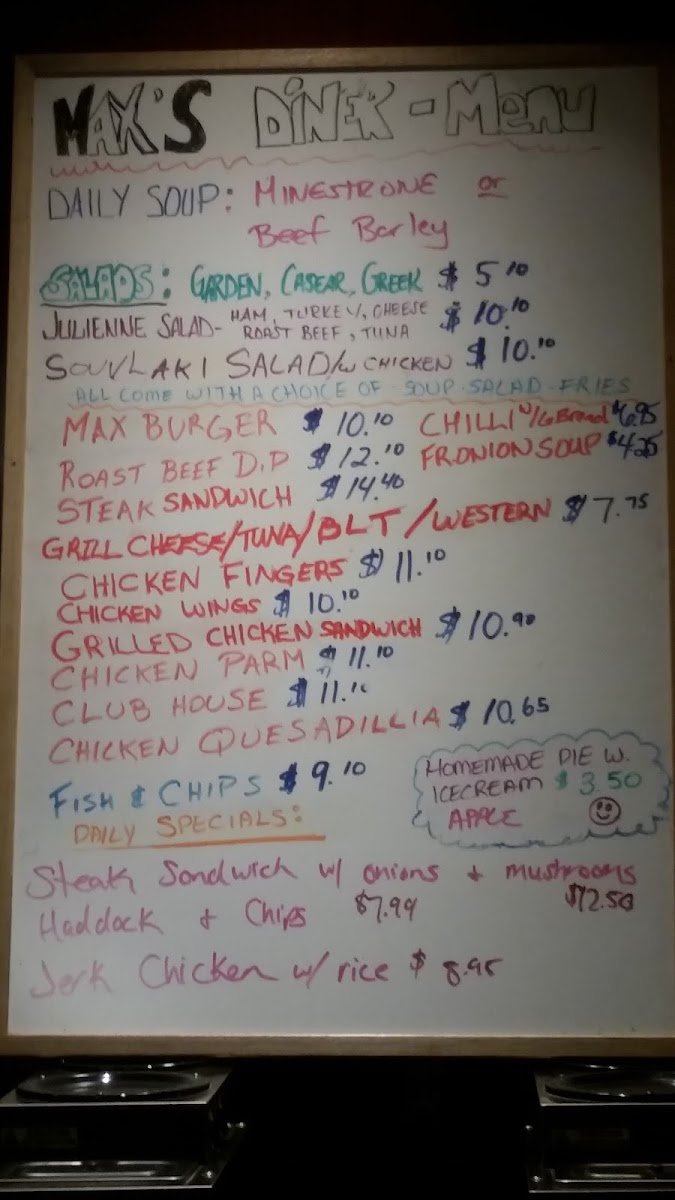 MAX'S DINER - MENU
DAILY SOUP: MINESTRONE or
Beef Barley
SALADS: GARDEN, CASEAR, GREEK $5.10
JULIENNE SALAD- HAM, TURKEY, CHEESE $10.10
ROAST BEEF, TUNA
SOUVLAKI SALAD/w CHICKEN $10.10
ALL COME WITH A CHOICE OF - SOUP - SALAD - FRIES
MAX BURGER $10.10 CHILLI W/G Bread $6.95
ROAST BEEF D.P $12.10 FRONION SOUP $4.25
STEAK SANDWICH $14.40
GRILL CHEESE/TUNA/BLT/WESTERN $7.75
CHICKEN FINGERS $11.10
CHICKEN WINGS $10.10
GRILLED CHICKEN SANDWICH $10.90
CHICKEN PARM $11.10
CLUB HOUSE $11.10
CHICKEN QUESADILLIA $10.65
FISH & CHIPS $9.10
HOMEMADE PIE W.
ICECREAM $3.50
APPLE
DAILY SPECIALS:
Steak Sandwich w/ onions + mushrooms
$12.50
Haddock + Chips $7.99
Jerk Chicken w/ rice $8.95